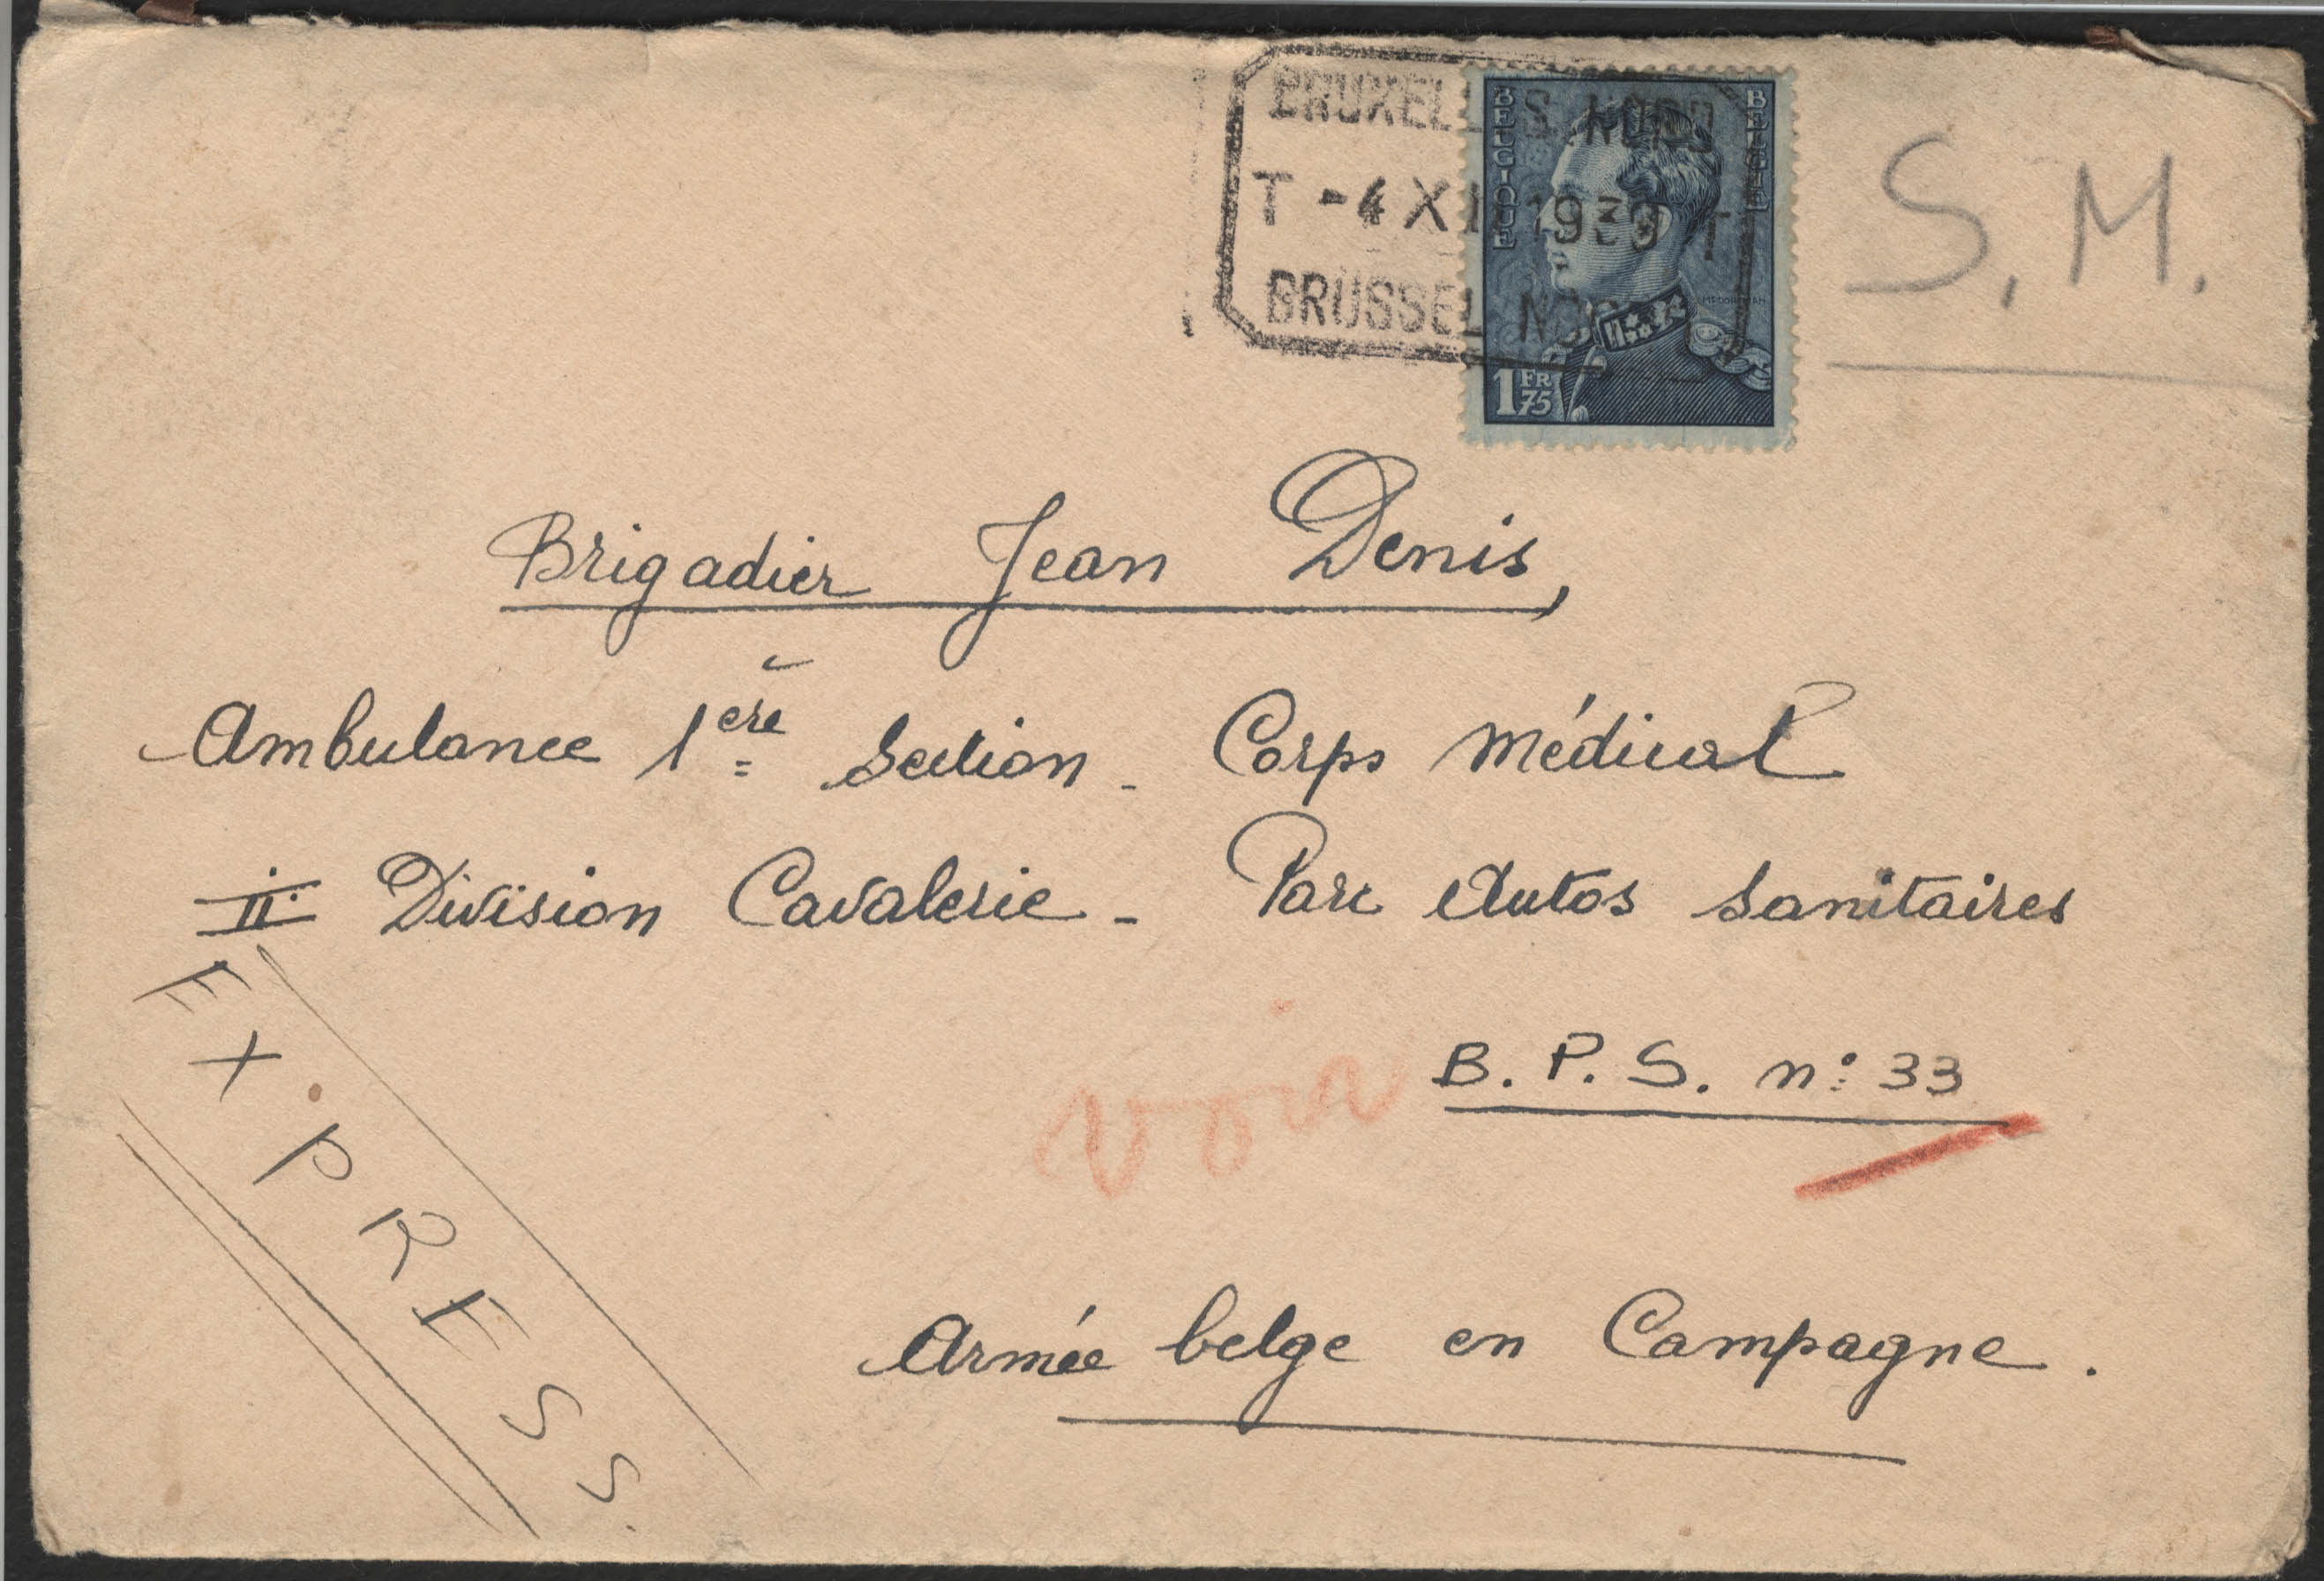 BRUXELLES NORD
T -4 XII 1939 T
BRUSSEL NOORD
BELGIQUE
BELGIË
1 FR 75
S.M.
Brigadier Jean Denis,
Ambulance 1ère Section - Corps Médical
II Division Cavalerie - Parc Autos Sanitaires
B.P.S. n° 33
voir
EXPRESS.
Armée belge en Campagne.